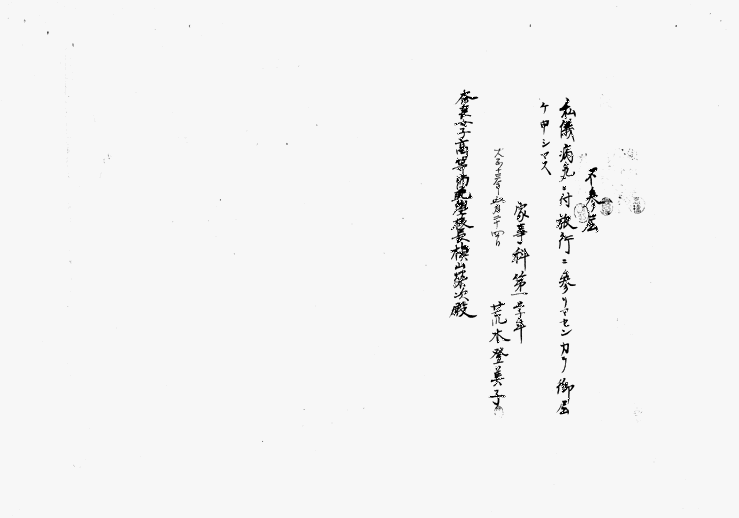 不参届
私儀病気ニ付旅行ニ参リマセンカラ御届
ケ申シマス
大正十三年五月二十四日
家事科第一学年
荒木登美子
奈良女子高等師範學校長槇山榮次殿